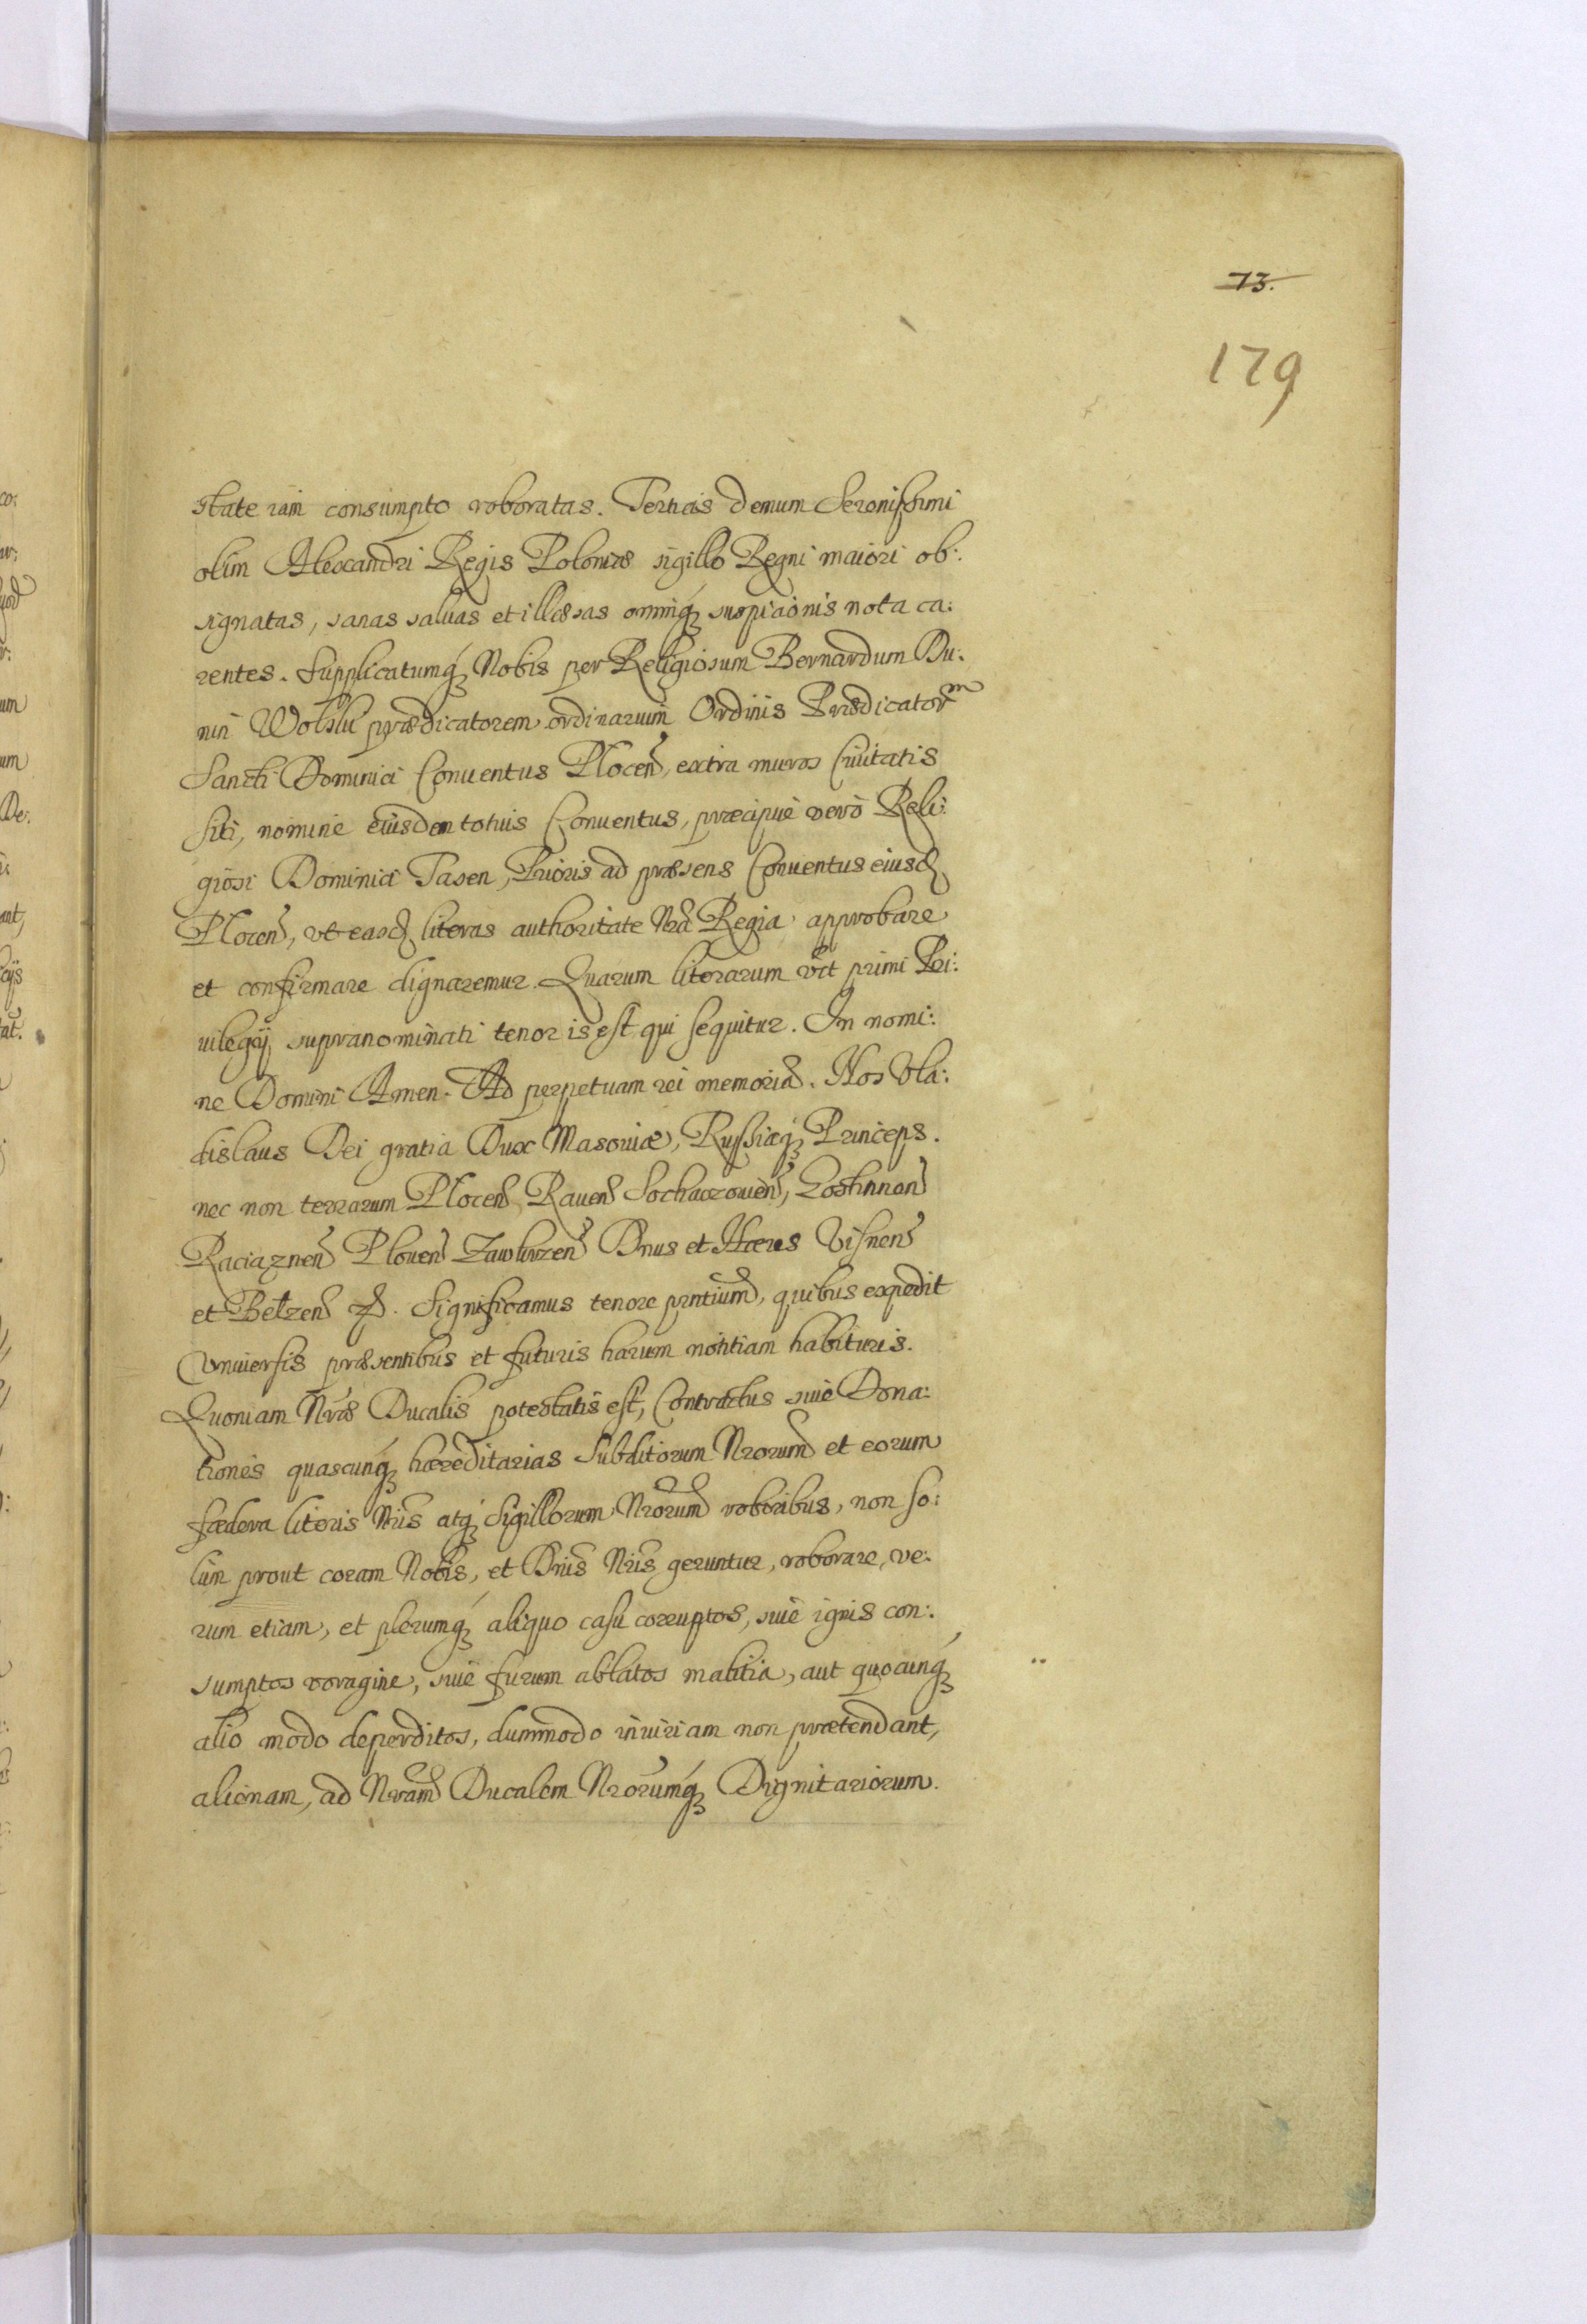 73.
179
state iam consumpto roboratas. Tertias demum Serenissimi
olim Alexandri Regis Poloniæ sigillo Regni maiori ob:
signatas, sanas saluas et illæsas omniq; suspicionis nota ca:
rentes. Supplicatumq; Nobis per Religiosum Bernardum Du:
nin Wolski prædicatorem ordinarium Ordinis Prædicatorm
Sancti Dominici Conuentus Plocen, extra muros Ciuitatis
siti, nomine eiusdem totius Conuentus, præcipuè verò Reli:
giosi Dominici Tasen, Prioris ad præsens Conuentus eiusd
Plocen, vt easd literas authoritate Nra Regia approbare
et confirmare dignaremur. Quarum literarum vct primi Pri:
uilegij supranominati tenor is est qui sequitur. In nomi:
ne Domini Amen. Ad perpetuam rei memoria. Nos Vla:
dislaus Dei gratia Dux Masouiæ, Russiæq; Princeps.
nec non terrarum Plocen, Rauen Sochaczouien, Gostinnen
Raciaznen Plonen Zawkrzen Dnus et Hæres Visnen
et Belzen &. Significamus tenore pntium, quibus expedit
Vniuersis præsentibus et futuris harum notitiam habituris.
Quoniam Nræ Ducalis potestatis est, Contractus siuè Dona:
tiones quascunq; hæreditarias Subditorum Nrorum et eorum
fædera literis Nris atq; Sigillorum Nrorum roboribus, non so:
lùm prout coram Nobis, et Dnis Nris geruntur, roborare, ve:
rum etiam, et plerumq; aliquo casu corruptos, siuè ignis con:
sumptos voragine, siuè furum ablatos malitia, aut quocunq;
alio modo deperditos, dummodo iniuriam non prætendant,
alienam, ad Nram Ducalem Nrorumq; Dignitariorum.